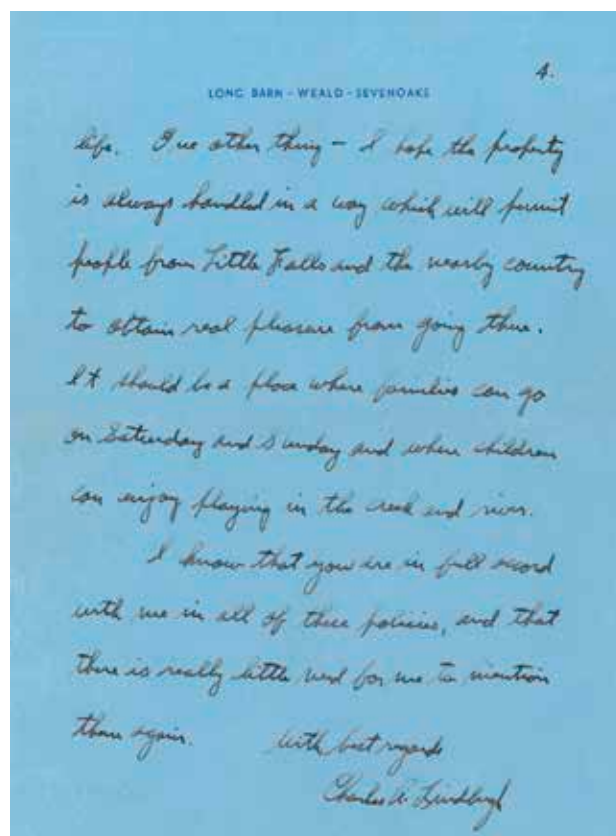 4.
LONG BARN - WEALD - SEVENOAKS
life. One other thing – I hope the property
is always handled in a way which will permit
people from Little Falls and the nearby country
to obtain real pleasure from going there.
It should be a place where families can go
on Saturday and Sunday and where children
can enjoy playing in the creek and river.
I know that you are in full accord
with me in all of these policies, and that
there is really little need for me to mention
them again. With best regards
Charles A. Lindbergh